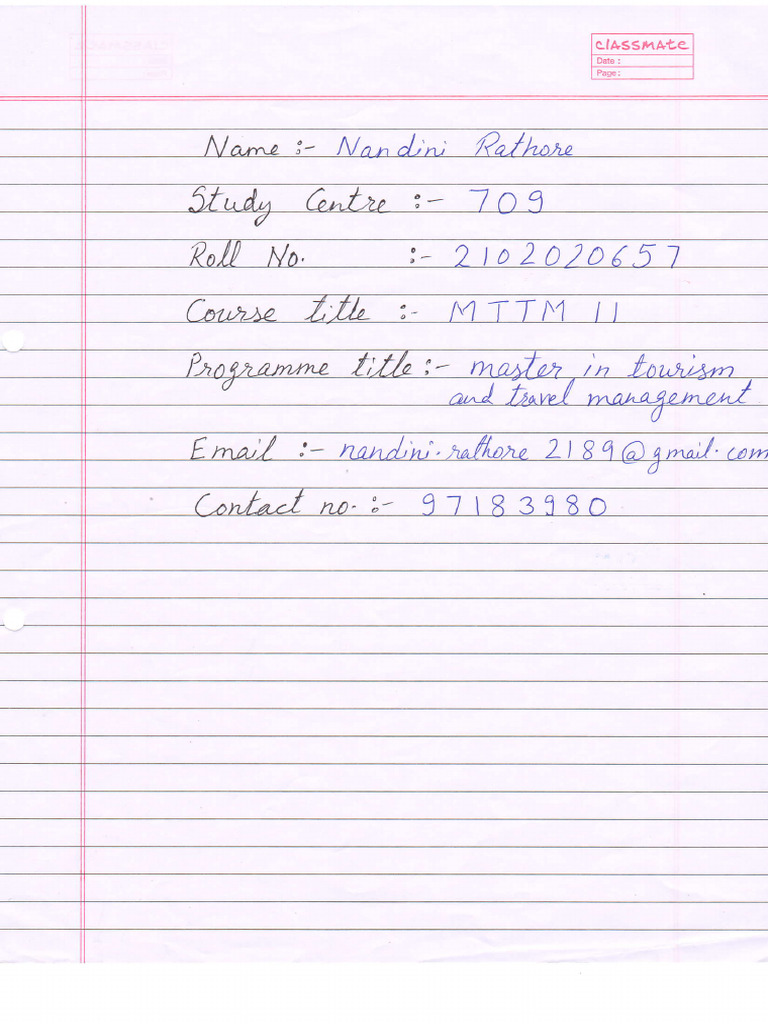 classmate
Date :
Page :
Name :- Nandini Rathore
Study Centre :- 709
Roll No. :- 2102020657
Course title :- MTTM 11
Programme title :- master in tourism
and travel management
Email :- nandini.rathore2189@gmail.com
Contact no. :- 97183980